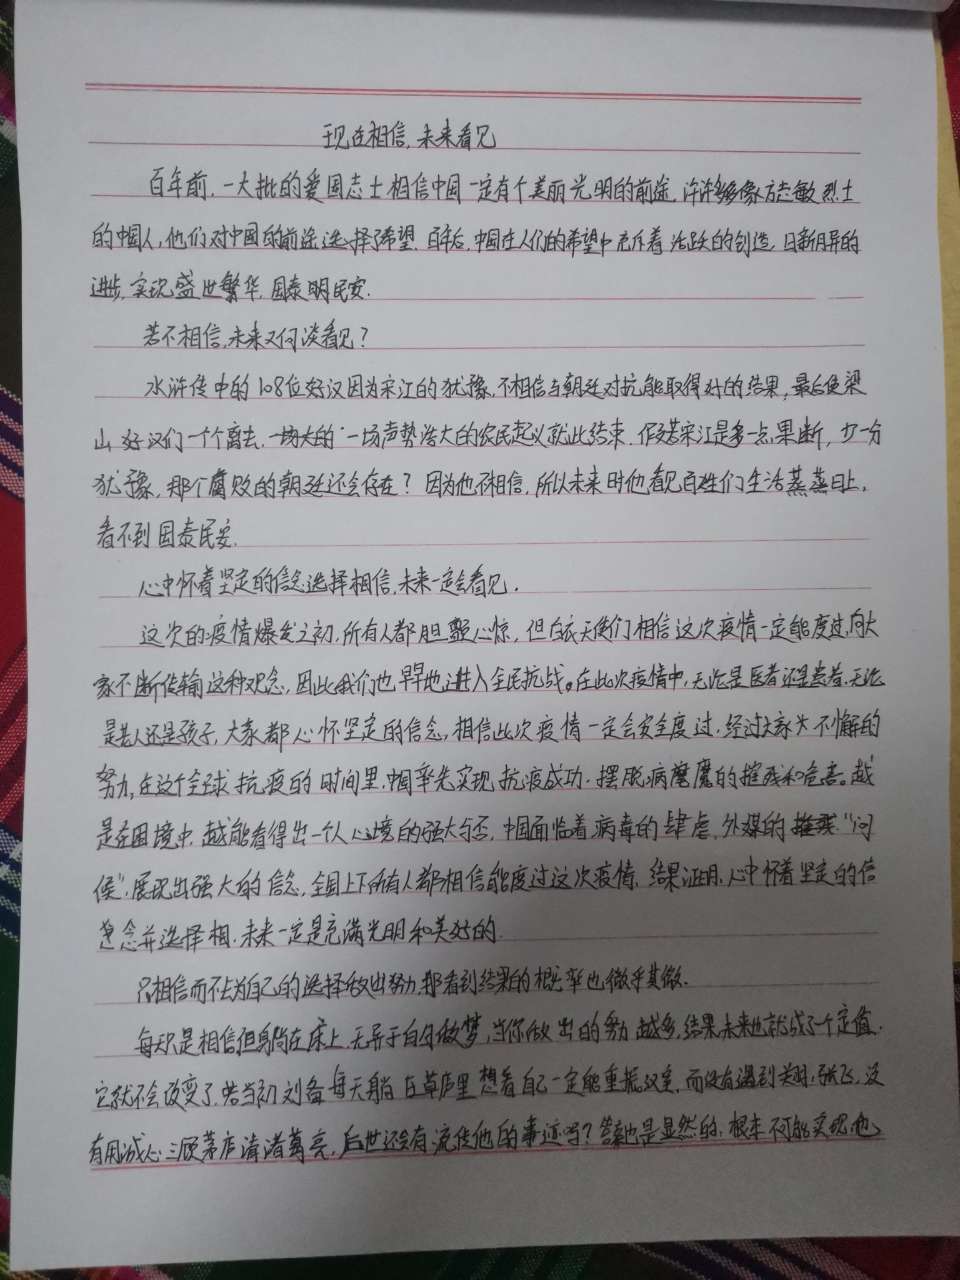 现在相信,未来看见
百年前,一大批的爱国志士相信中国一定有个美丽光明的前途,许许多多像方志敏烈士
的中国人,他们对中国的前途选择了希望.百年后,中国在人们的希望中充斥着活跃的创造,日新月异的
进步,实现盛世繁华,国泰明民安.
若不相信,未来又何谈看见?
水浒传中的108位好汉因为宋江的犹豫,不相信与朝廷对抗能取得好的结果,最后使梁
山好汉们一个个离去,一场声势浩大的农民起义就此结束,宋江是多一点果断,少一分
犹豫,那个腐败的朝廷还会存在?因为他不相信,所以未来时他看见百姓们生活蒸蒸日上,
看不到国泰民安.
心中怀着坚定的信念选择相信,未来一定会看见.
这次的疫情爆发之初,所有人都胆颤心惊,但白衣天使们相信这次疫情一定能度过,向大
家不断传输这种观念,因此我们也早早地进入全民抗战。在此次疫情中,无论是医者还是患者,无论
是老人还是孩子,大家都心怀坚定的信念,相信此次疫情一定会安全度过.经过大家不懈的
努力,在这个全球抗疫的时间里,中国率先实现抗疫成功.摆脱病魔的摧残和危害。越
是在困境中,越能看得出一个人心境的强大与否,中国面临着病毒的肆虐,外媒的"问
候",展现出强大的信念,全国上下所有人都相信能度过这次疫情.结果证明,心中怀着坚定的信
念并选择相,未来一定是充满光明和美好的.
只相信而不去为自己的选择做出努力,那看到结果的概率也微乎其微.
每天只是相信但身躺在床上,无异于白日做梦,当你做出的努越多,结果未来也就成了个定值,
它就不会改变了.若当初刘备每天躺在草庐里想着自己一定能重振汉室,而没有遇到关羽,张飞,没
有用诚心三顾茅庐请诸葛亮,后世还会有流传他的事迹吗?答案也是显然的,根本不可能实现,也